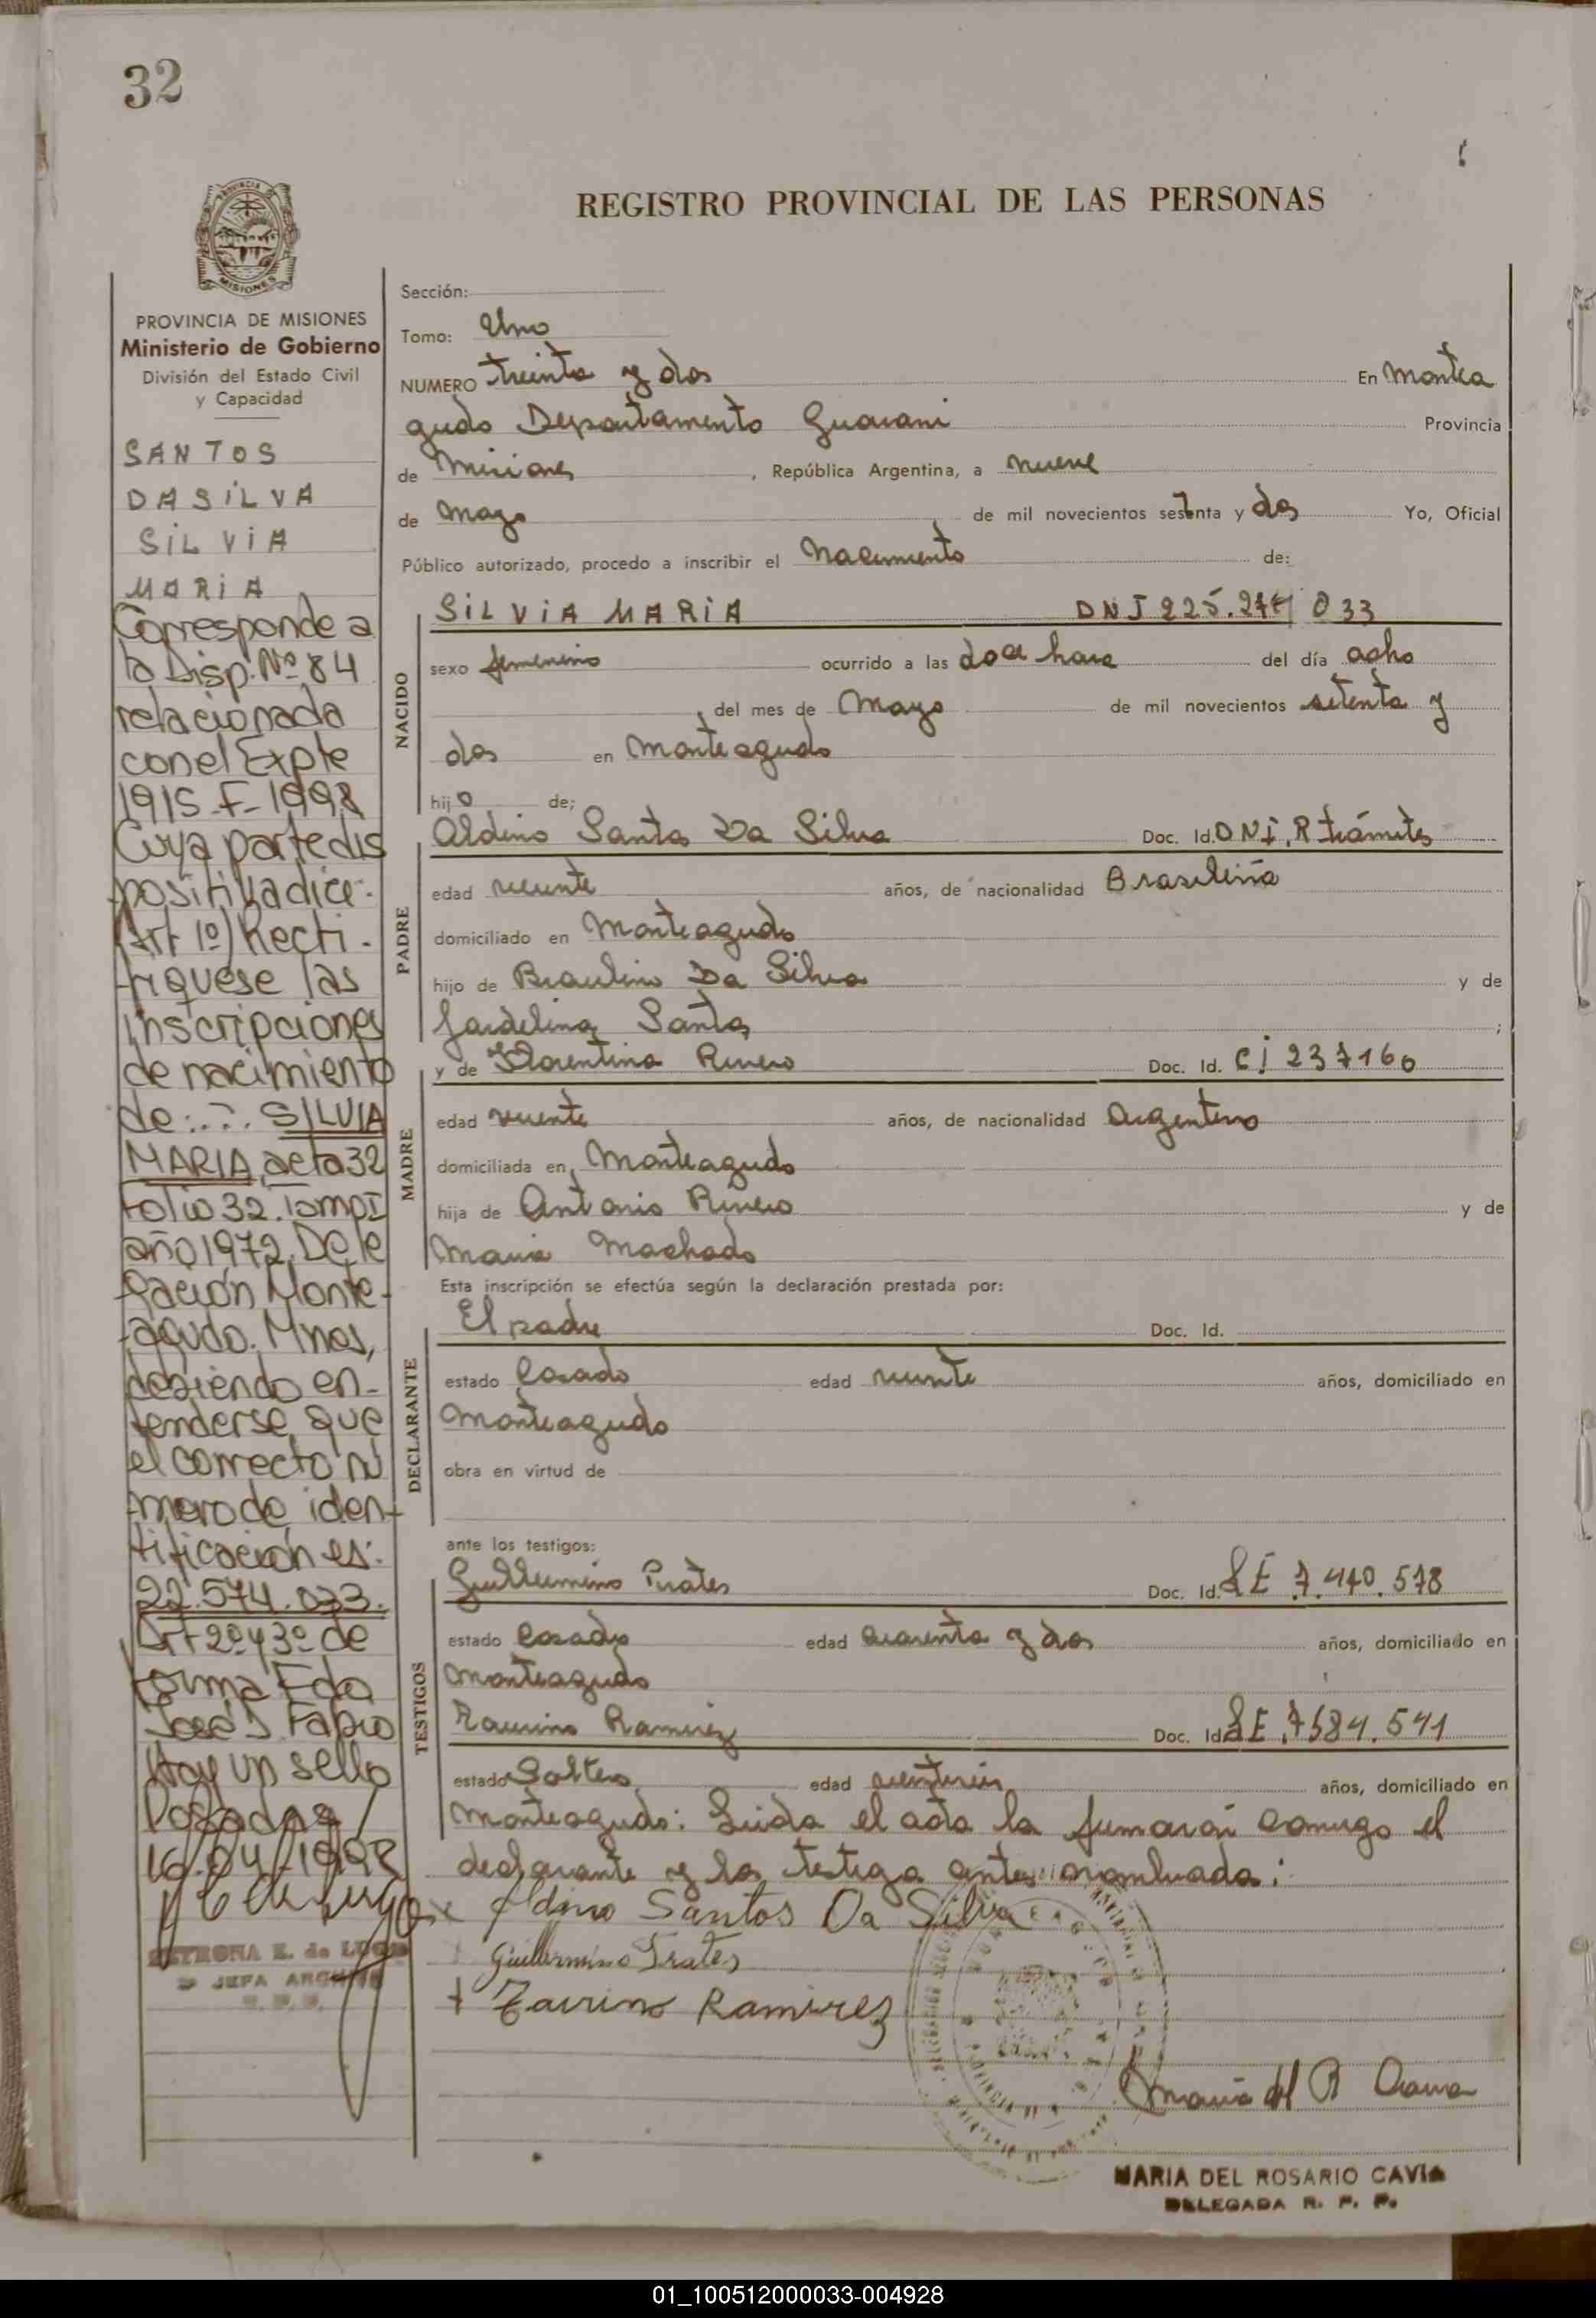 32
REGISTRO PROVINCIAL DE LAS PERSONAS
MISIONES
PROVINCIA DE MISIONES
Ministerio de Gobierno
División del Estado Civil
y Capacidad
SANTOS
DASILVA
SILVIA
MARIA
Corresponde a
la Disp. Nº 84
relacionada
con el Expte
1915-F-1998
Cuya parte dis
positiva dice:
Art 1º) Recti-
fiquese las
inscripciones
de nacimiento
de: SILVIA
MARIA, acta 32
Folio 32. Tomo I
año 1972. Dele
gación Monte-
agudo. Mnes,
debiendo en-
tenderse que
el correcto nú
mero de iden-
tificación es:
22.574.033.
Art 2º y 3º de
forma Fdo
José D. Fabio
Hay un sello
Posadas,
16/04/1998
PETRONA E. de LUGO
JEFA ARCHIVO
Sección:
Tomo: Uno
NUMERO treinta y dos En Montea
gudo Departamento Guarani Provincia
de Misiones, República Argentina, a nueve
de Mayo de mil novecientos setenta y dos Yo, Oficial
Público autorizado, procedo a inscribir el Nacimiento de:
NACIDO
SILVIA MARIA DNI 033
sexo femenino ocurrido a las doce hora del día ocho
del mes de Mayo de mil novecientos setenta y
dos en Monteagudo
hijo de;
PADRE
Aldino Santos Da Silva Doc. Id. DNI. R trámites
edad veinte años, de nacionalidad Brasileña
domiciliado en Monteagudo
hijo de Braulino Da Silva y de
Jardelina Santos;
MADRE
y de Florentina Rivero Doc. Id. CI 237160
edad veinte años, de nacionalidad Argentino
domiciliada en, Monteagudo
hija de Antonio Rivero y de
Maria Machado
Esta inscripción se efectúa según la declaración prestada por:
DECLARANTE
El padre Doc. Id.
estado Casado edad veinte años, domiciliado en
Monteagudo
obra en virtud de
ante los testigos:
TESTIGOS
Guillermino Prates Doc. Id. LE 7.440.578
estado Casado edad cuarenta y dos años, domiciliado en
Monteagudo
Taurino Ramirez Doc. Id. LE 7584.541
estado Soltero edad veintiseis años, domiciliado en
Monteagudo: Leida el acta la firmaron conmigo el
declarante y los testigo antes nombrado:
Aldino Santos Da Silva
Guillermino Prates
Taurino Ramirez
Maria del R Cavia
MARIA DEL ROSARIO CAVIA
DELEGADA R. P. P.
01_100512000033-004928